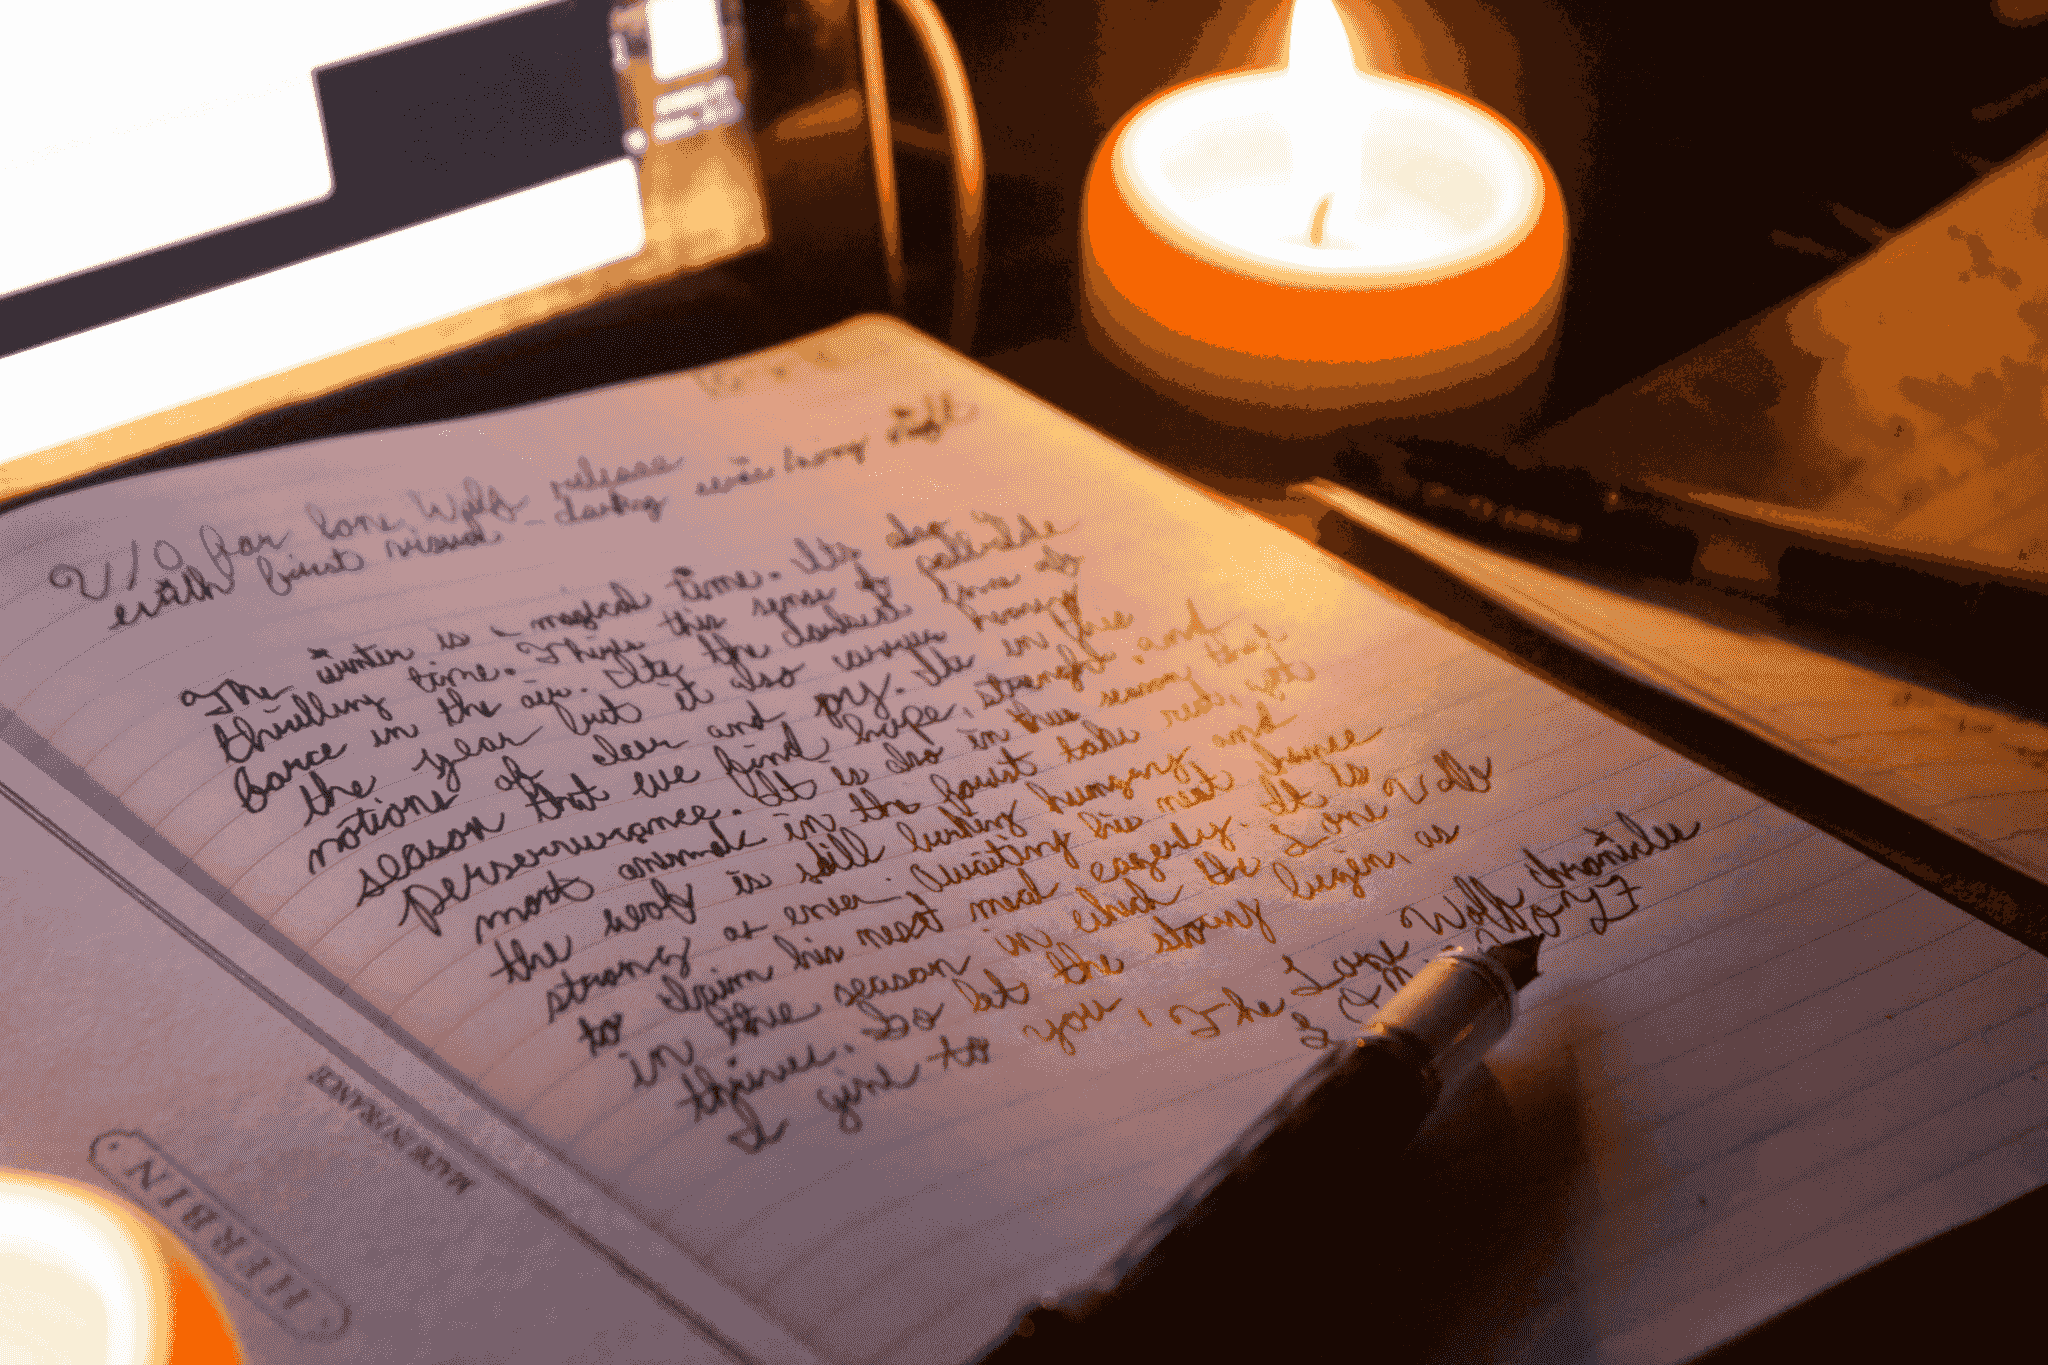 V/O for Lone Wolf release
with first visual - darkig scene being
The winter is a magical time. Its also
thrilling time. Theres this sense of gratitude
force in the air. Its the darkest time of
the year but it also carries
notions of cheer and joy. Its in this
season that we find hope, strenght, and
perserverance. It is also in this season that
most animals in the forest take rest, yet
the wolf is still lurking hungry and
strong as ever. Awaiting his next
to claim his next meal eagerly. It is
in this season in which the Lone Wolf
thrives. So let the story begin, as
I give to you, The Lone Wolf chronicles
MADE IN FRANCE
HERBIN